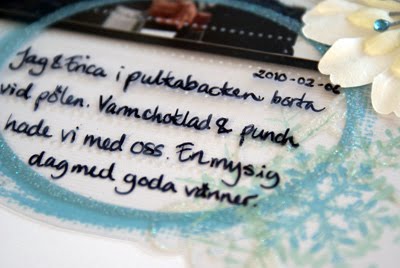 2010-02-06
Jag & Erica i pulkabacken borta
vid pölen. Varmchoklad & punch
hade vi med oss. En mysig
dag med goda vänner.